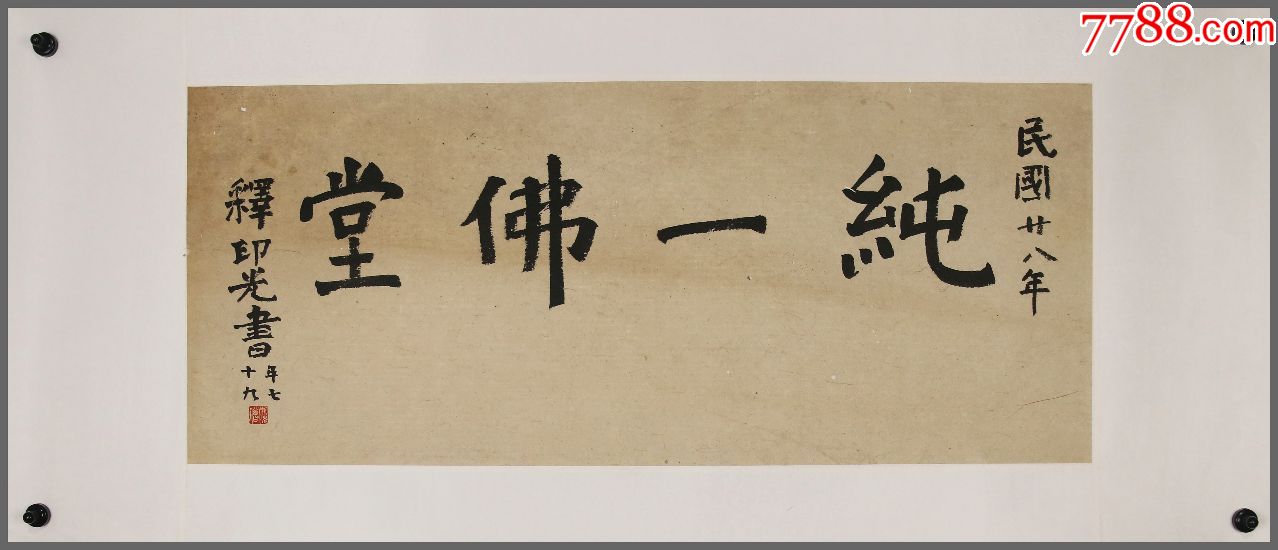 7788.com
民國廿八年
純一佛堂
釋印光書
年七
十九